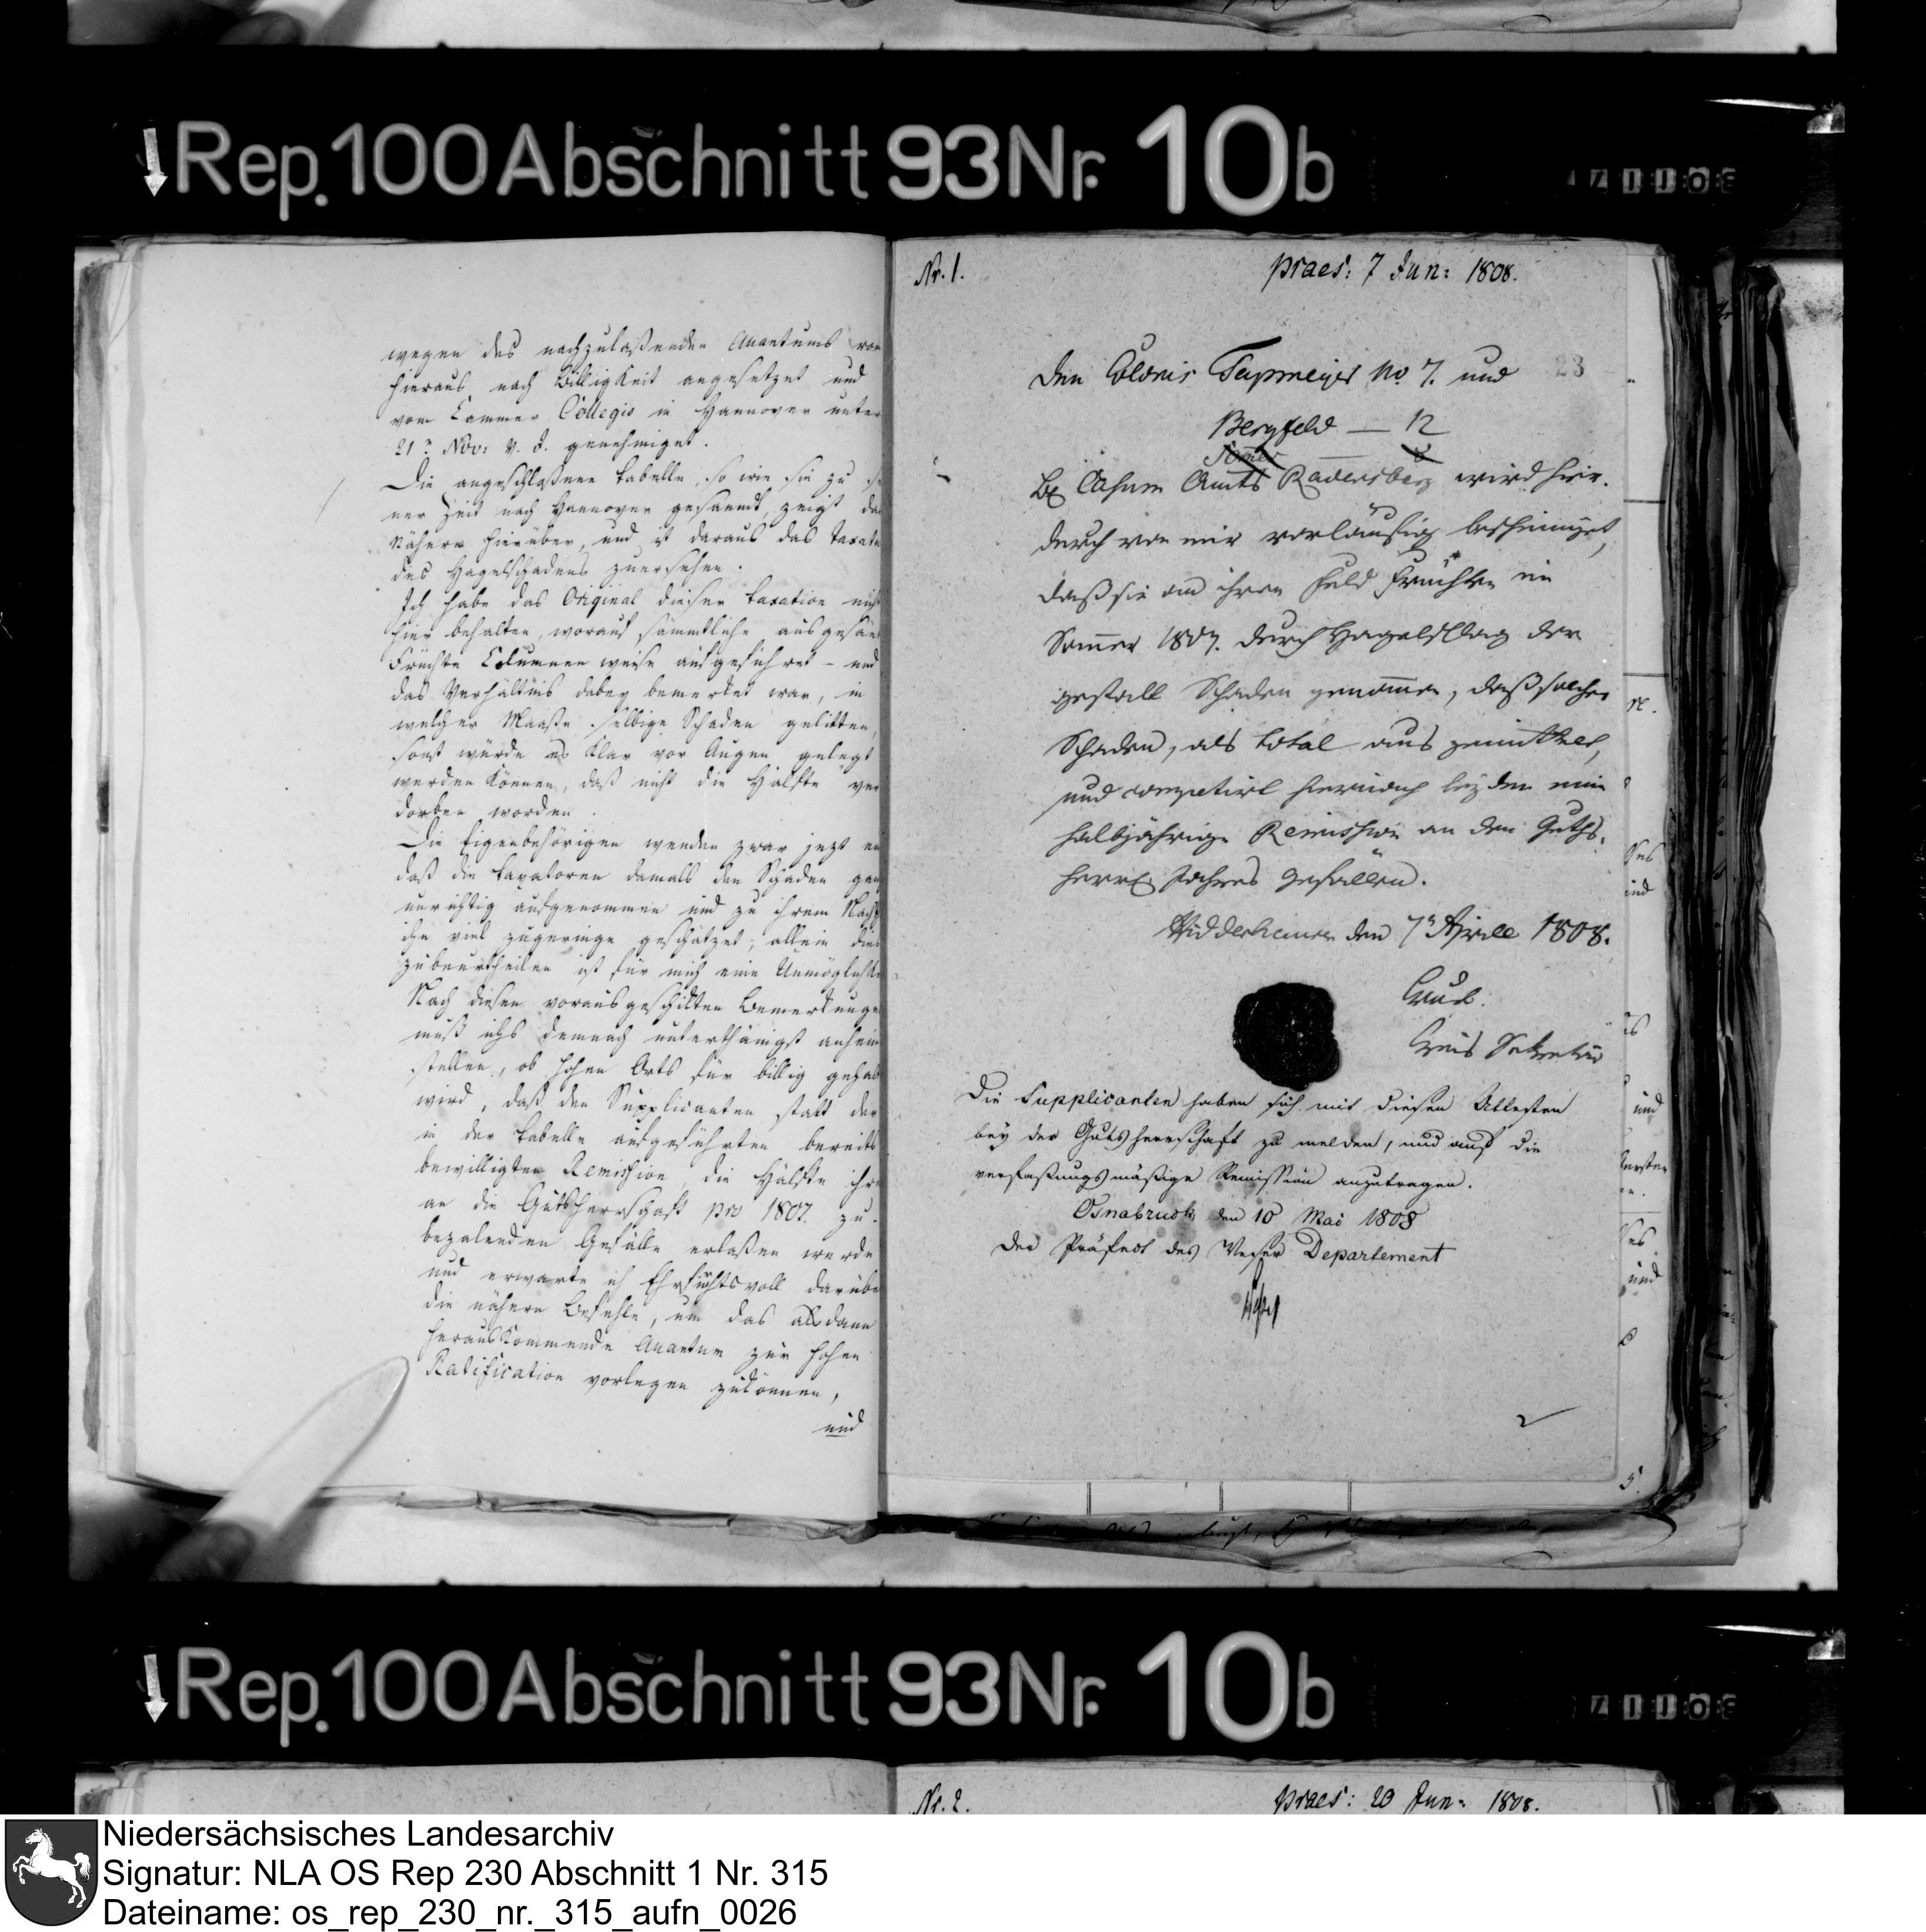 Rep. 100 Abschnitt 93 Nr. 10b
wegen des nachzulaßenden Quantums von
hieraus nach Billigkeit angesetzet und
vom Cammer Collegio in Hannover unter
21n Nov: v. J. genehmiget.
Die angeschloßene Tabelle, so wie sie zu se
ner Zeit nach Hannover gesandt, zeigt das
Nähere hierüber, und ist daraus das Taxatum
des Hagelschadens zuersehen.
Ich habe das Original dieser Taxation nicht
hier behalten, worauf sämmtliche ausgesäete
Früchte Columnen weise aufgeführet – und
das Verhältnis dabey bemerket war, in
welcher Maaße selbige Schaden gelitten,
sonst würde es klar vor Augen gelegt
werden können, daß nicht die Hälfte ver
dorben worden.
Die Eigenbehörigen wenden zwar jezt ein
daß die Taxatoren damals den Schaden ganz
unrichtig aufgenommen und zu ihrem Nacht
ihn viel zugeringe geschätzet; allein dies
zubeurtheilen ist für mich eine Unmöglichk
Nach diesen vorausgeschickten Bemerkunge
muß ichs demnach unterthänigst anheim
stellen, ob hohen Orts für billig gehal
wird, daß den Supplicanten statt der
in der Tabelle aufgeführten bereits
bewilligten Remission, die Hälfte ihre
an die Gutsherrschaft pro 1807. zu
bezalenden Gefälle erlaßen werde
und erwarte ich Ehrfurchtsvoll darübe
die nähern Befehle, um das alsdann
herauskommende Quantum zur hohen
Ratification vorlegen zukönnen,
und
Nr. 1.
praes: 7 Jun: 1808.
23
Den Colonis Tapmeyer No 7. und
Bergfeld — 12
wird hier-
durch von mir vorläufig bescheiniget,
daß sie an ihren Feld Früchten im
Sommer 1807. durch Hagelschlag der
gestalt Schaden genommen, daß solcher
Schaden, als total aus
und competirt hiernach beyden eine
halbjährige Remission an den Guths-
herrl Gefällen.
den 7n Aprill 1808.
Kreis Sekretär
Die Supplicanten haben sich mit diesen Attesten
bey der Gutsherrschaft zu melden, und auf die
verfaßungsmäßige Remission anzutragen.
Osnabruck den 10 Mai 1808
Der Präfect des Weser Departement
2
Rep. 100 Abschnitt 93 Nr. 10b
Nr. 2.
praes: 20 Jun: 1808.
Niedersächsisches Landesarchiv
Signatur: NLA OS Rep 230 Abschnitt 1 Nr. 315
Dateiname: os_rep_230_nr._315_aufn_0026